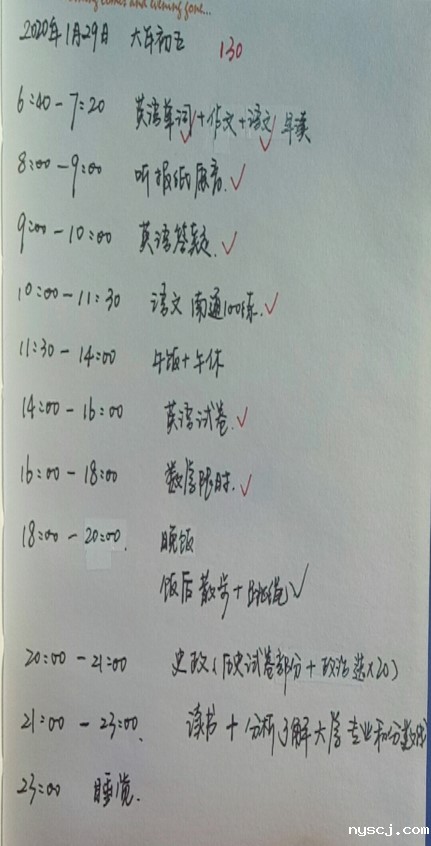 2020年1月29日 大年初五 130
6:40-7:20 英语单词+作文+语文 早读
8:00-9:00 听报纸
9:00-10:00 英语答疑
10:00-11:30 语文 南通100练
11:30-14:00 午饭+午休
14:00-16:00 英语试卷
16:00-18:00 数学限时
18:00-20:00 晚饭
饭后散步+跳绳
20:00-21:00 史政(历史试卷部分+政治选×20)
21:00-23:00 读书+分析了解大学专业和分数线
23:00 睡觉
www.nyscj.com